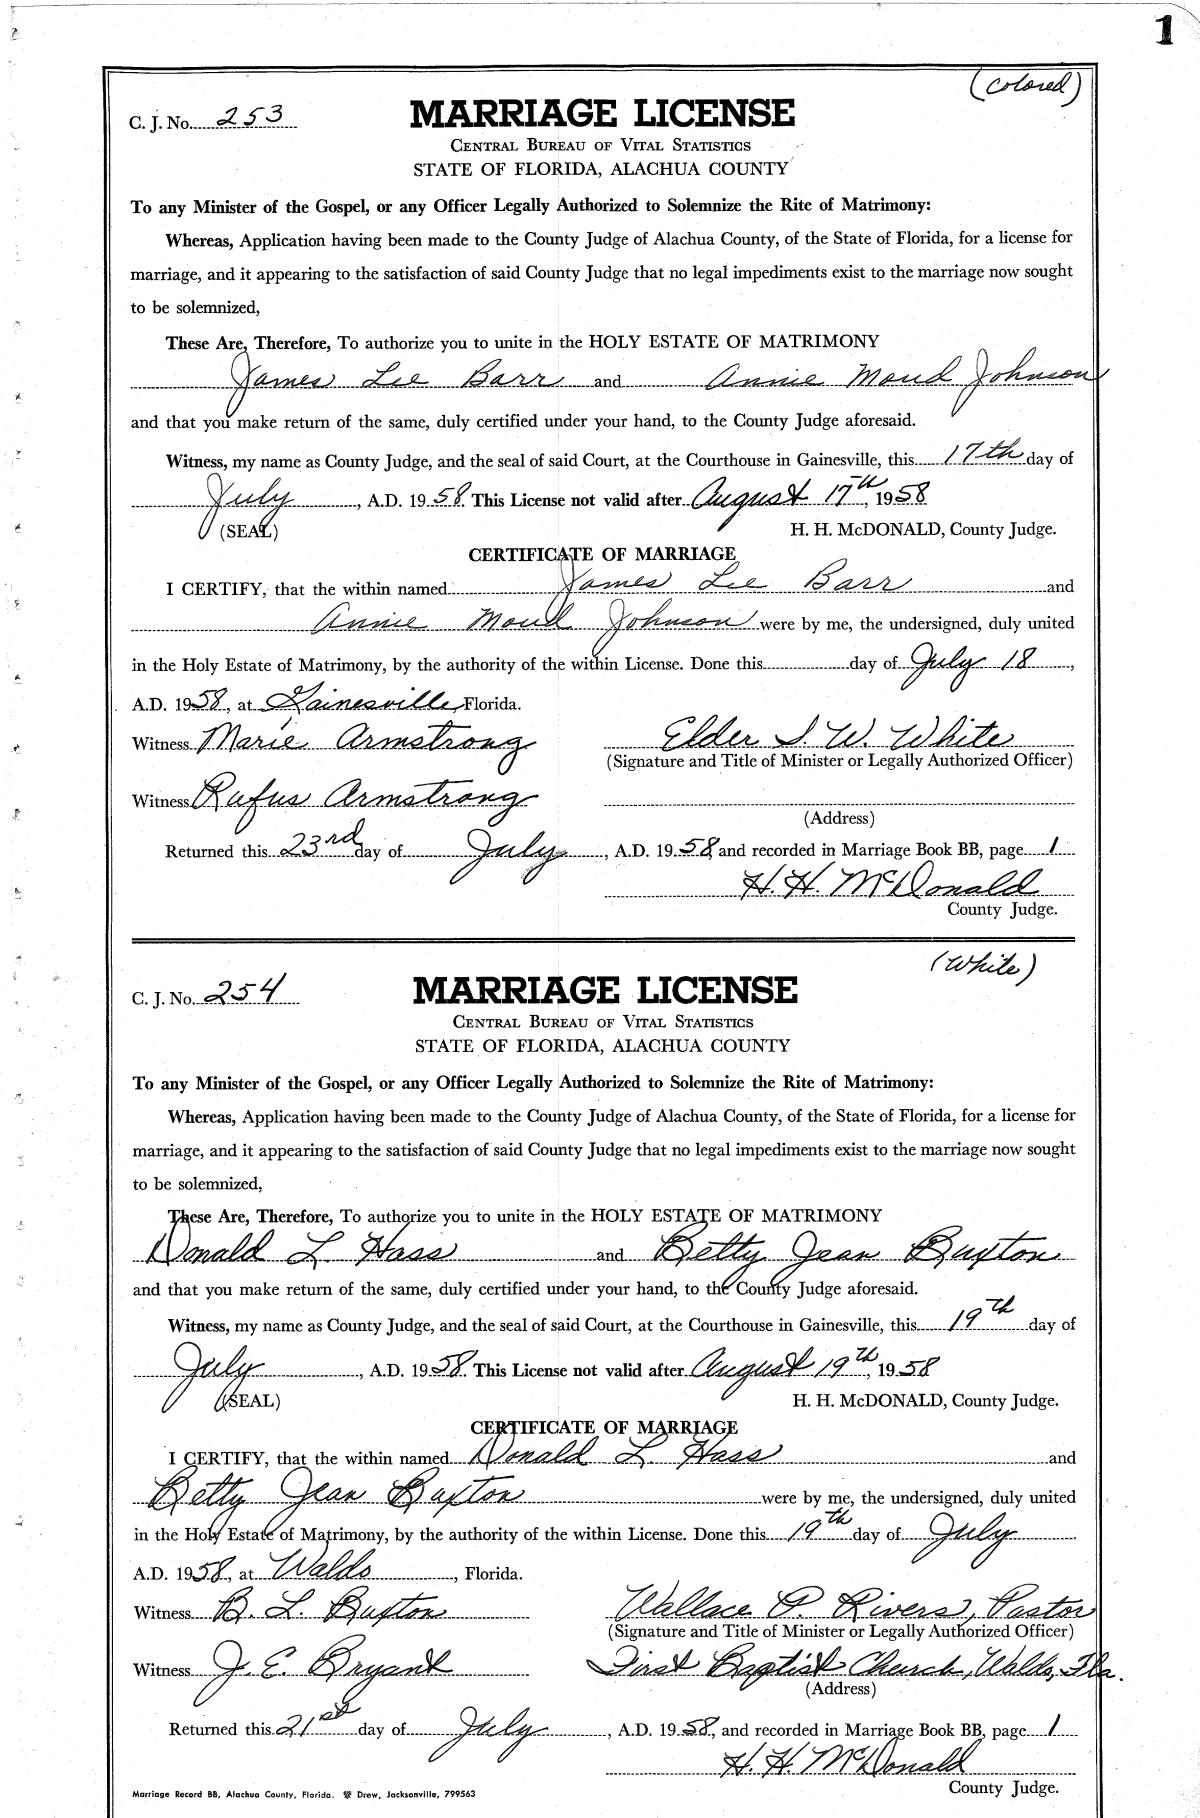 1
(Colored)
C. J. No. 253
MARRIAGE LICENSE
CENTRAL BUREAU OF VITAL STATISTICS
STATE OF FLORIDA, ALACHUA COUNTY
To any Minister of the Gospel, or any Officer Legally Authorized to Solemnize the Rite of Matrimony:
Whereas, Application having been made to the County Judge of Alachua County, of the State of Florida, for a license for
marriage, and it appearing to the satisfaction of said County Judge that no legal impediments exist to the marriage now sought
to be solemnized,
These Are, Therefore, To authorize you to unite in the HOLY ESTATE OF MATRIMONY
James Lee Barr and Annie Maud Johnson
and that you make return of the same, duly certified under your hand, to the County Judge aforesaid.
Witness, my name as County Judge, and the seal of said Court, at the Courthouse in Gainesville, this 17th day of
July, A.D. 1958. This License not valid after August 17th, 1958
(SEAL) H. H. McDONALD, County Judge.
CERTIFICATE OF MARRIAGE
I CERTIFY, that the within named James Lee Barr and
Annie Maud Johnson were by me, the undersigned, duly united
in the Holy Estate of Matrimony, by the authority of the within License. Done this day of July 18,
A.D. 1958, at Gainesville, Florida.
Witness Marie Armstrong Elder S. W. White
(Signature and Title of Minister or Legally Authorized Officer)
Witness Rufus Armstrong
(Address)
Returned this 23rd day of July, A.D. 1958, and recorded in Marriage Book BB, page 1
H. H. McDonald
County Judge.
(White)
C. J. No. 254
MARRIAGE LICENSE
CENTRAL BUREAU OF VITAL STATISTICS
STATE OF FLORIDA, ALACHUA COUNTY
To any Minister of the Gospel, or any Officer Legally Authorized to Solemnize the Rite of Matrimony:
Whereas, Application having been made to the County Judge of Alachua County, of the State of Florida, for a license for
marriage, and it appearing to the satisfaction of said County Judge that no legal impediments exist to the marriage now sought
to be solemnized,
These Are, Therefore, To authorize you to unite in the HOLY ESTATE OF MATRIMONY
Donald L. Hass and Betty Jean Buxton
and that you make return of the same, duly certified under your hand, to the County Judge aforesaid.
Witness, my name as County Judge, and the seal of said Court, at the Courthouse in Gainesville, this 19th day of
July, A.D. 1958. This License not valid after August 19th, 1958
(SEAL) H. H. McDONALD, County Judge.
CERTIFICATE OF MARRIAGE
I CERTIFY, that the within named Donald L. Hass and
Betty Jean Buxton were by me, the undersigned, duly united
in the Holy Estate of Matrimony, by the authority of the within License. Done this 19th day of July
A.D. 1958, at Waldo, Florida.
Witness B. L. Buxton Wallace P. Rivers, Pastor
(Signature and Title of Minister or Legally Authorized Officer)
Witness J. E. Bryant First Baptist Church, Waldo, Fla.
(Address)
Returned this 21st day of July, A.D. 1958, and recorded in Marriage Book BB, page 1
H. H. McDonald
County Judge.
Marriage Record BB, Alachua County, Florida. Drew, Jacksonville, 799563